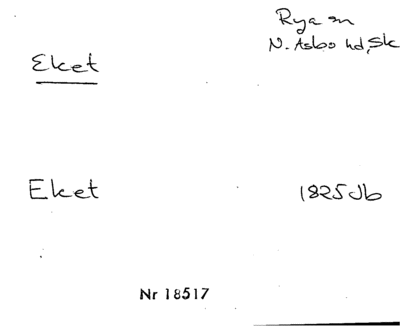 Rya sn
N. Åsbo hd, Sk
Eket
Eket 1825 Jb
Nr 18517